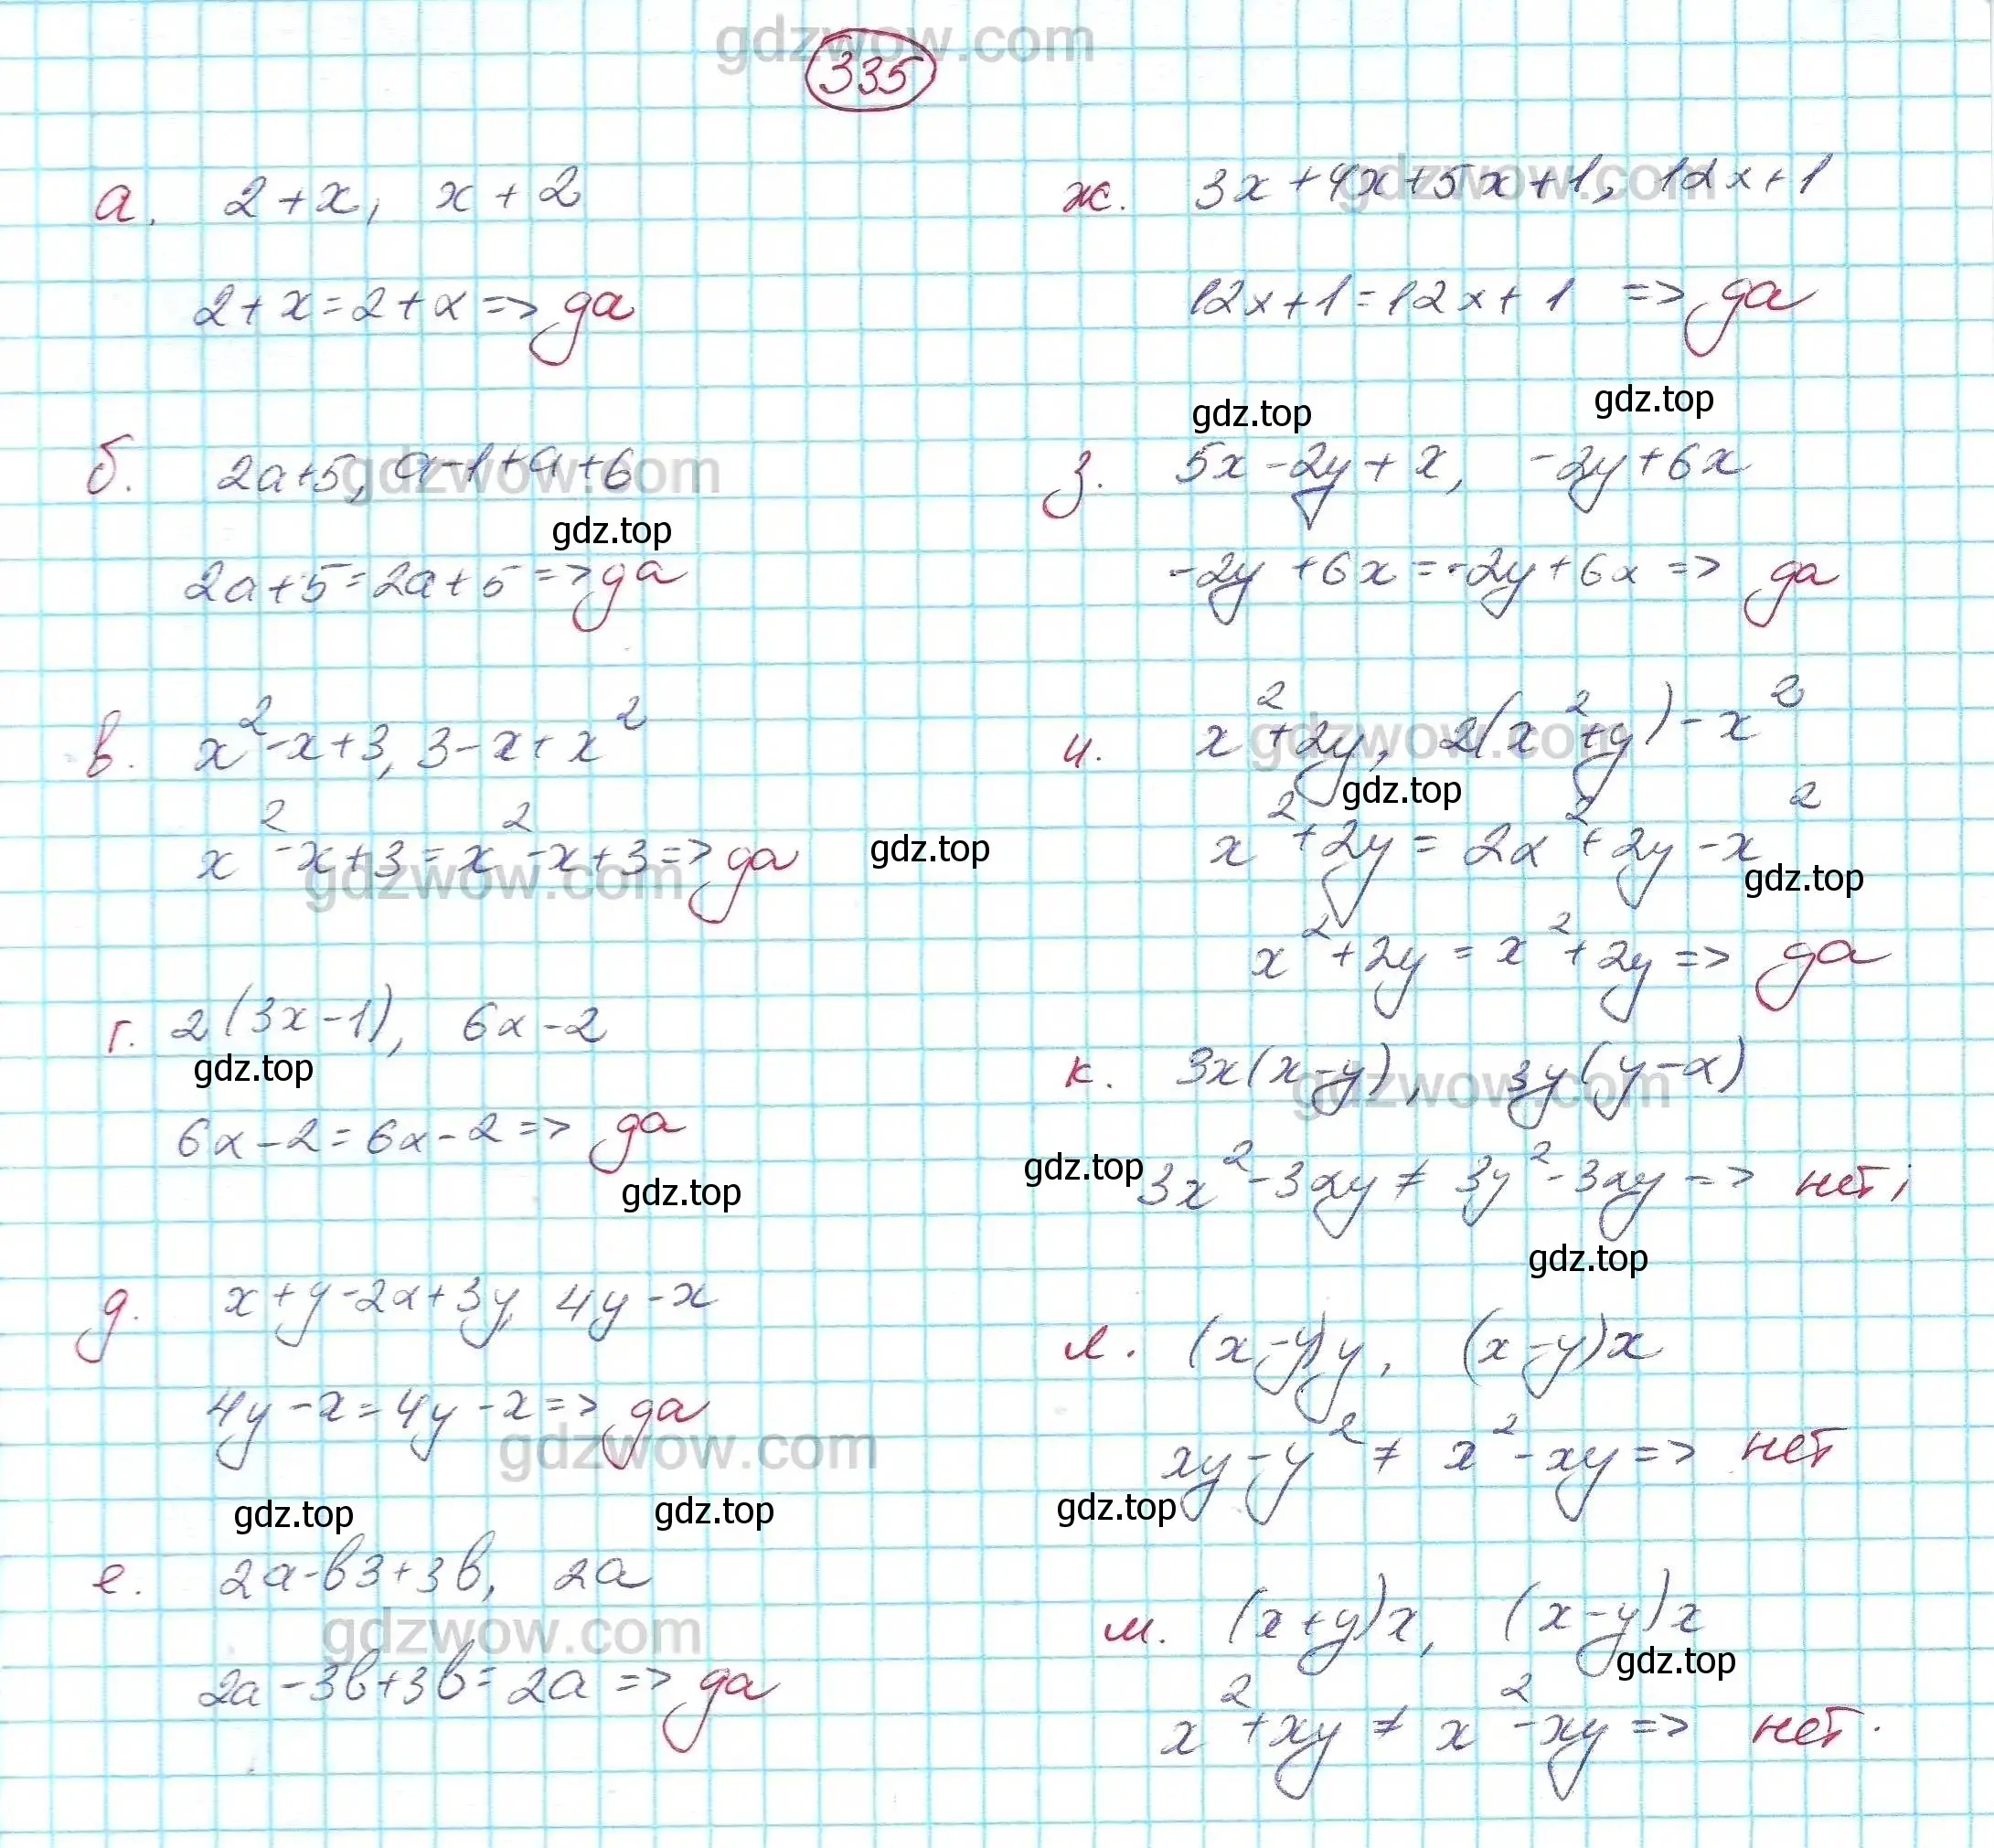 gdzwow.com
335
а. 2+x, x+2
2+x=2+x=> да
gdzwow.com
б. 2a+5, a-1+a+6
gdz.top
2a+5=2a+5=> да
в. x²-x+3, 3-x+x²
x²-x+3=x²-x+3=> да
gdz.top
gdzwow.com
г. 2(3x-1), 6x-2
gdz.top
6x-2=6x-2=> да
gdz.top
д. x+y-2x+3y, 4y-x
4y-x=4y-x=> да
gdzwow.com
gdz.top gdz.top
е. 2a-b3+3b, 2a
gdzwow.com
2a-3b+3b=2a=> да
ж. 3x+4x+5x+1, 12x+1
gdzwow.com
12x+1=12x+1 => да
gdz.top gdz.top
з. 5x-2y+x, -2y+6x
-2y+6x=-2y+6x=> да
и. x²+2y, 2(x²+y)-x²
gdzwow.com
gdz.top
x²+2y=2x²+2y-x²
gdz.top
x²+2y=x²+2y=> да
к. 3x(x-y), 3y(y-x)
gdzwow.com
gdz.top
3x²-3xy≠3y²-3xy=> нет;
gdz.top
л. (x-y)y, (x-y)x
xy-y²≠x²-xy=> нет
gdz.top
м. (x+y)x, (x-y)x
gdz.top
x²+xy≠x²-xy=> нет.